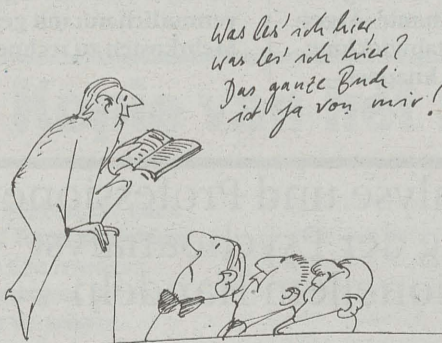 Was les' ich hier,
was les' ich hier?
Das ganze Buch
ist ja von mir!